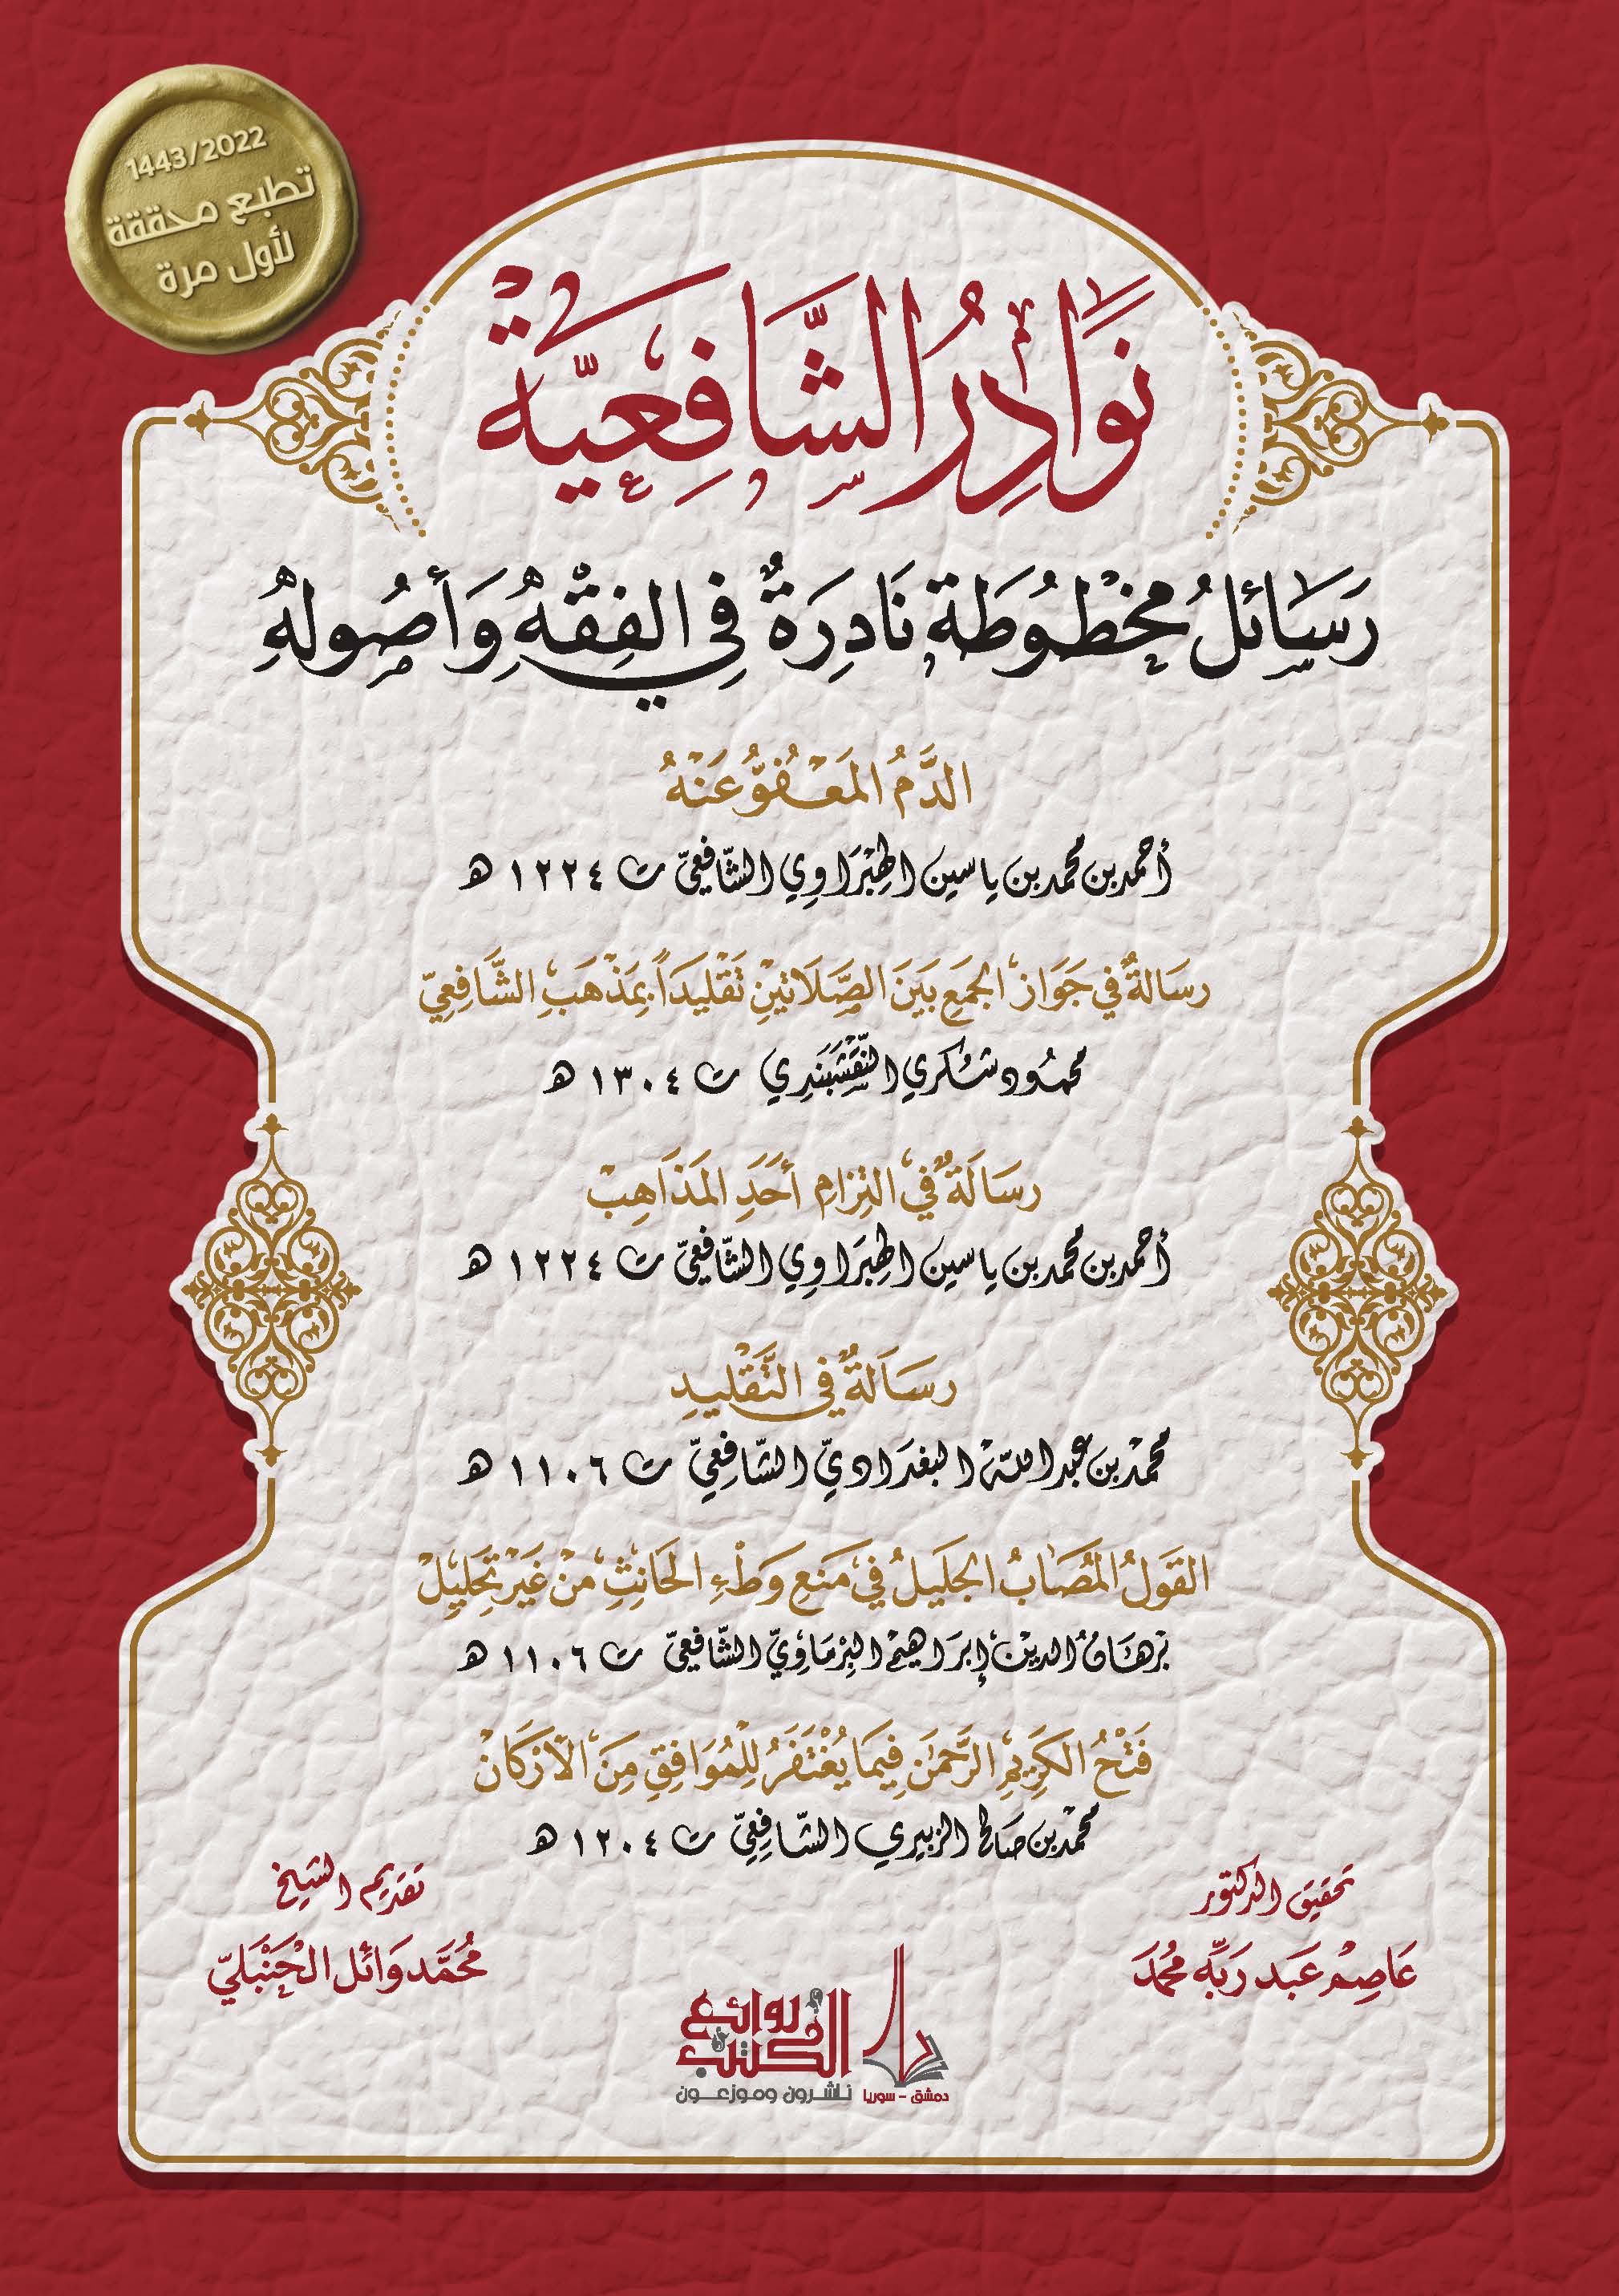 1443/2022
تطبع محققة
لأول مرة
نَوَادِرُ الشَّافِعِيَّة
رَسَائلُ مَخْطُوطَة نَادِرَةٌ فِي الفِقْهِ وَأُصُولِهِ
الدَّمُ المَعْفُوُّ عَنْهُ
أحمد بن محمد بن ياسين الهِبْرَاوِي الشَّافِعيّ ت ١٢٢٤ هـ
رسَالةٌ في جَوَاز الجَمْعِ بَيْنَ الصَّلَاتَيْنِ تَقْلِيدَاً بِمَذْهَبِ الشَّافِعِيّ
محمُود شُكري النَّقْشَبَندِي ت ١٣٠٤ هـ
رسَالَةٌ في التِزامِ أَحَدِ المَذَاهِبْ
أحمد بن محمد بن ياسين الهِبَرَاوِي الشَّافِعيّ ت ١٢٢٤ هـ
رسَالَةٌ في التَّقْليدِ
محمَّد بن عبد اللّه البغدَاديّ الشَّافِعِيّ ت ١١٠٦ هـ
القَولُ المُصَابُ الجَليلُ في مَنعِ وَطْءِ الحَانِثِ منْ غَيْر تَحْلِيلْ
بُرهَانُ الدين إبرَاهيمْ البِرْمَاوِيّ الشَّافِعيّ ت ١١٠٦ هـ
فَتْحُ الكَرِيمِ الرَّحمَنِ فِيمَا يُغْتَفَرُ لِلْمُوَافِقِ مِنَ الأَرْكَانْ
محمَّد بن صَالح الزبيري الشَّافِعيّ ت ١٢٠٤ هـ
تحقيق الدكتور
عَاصِمْ عَبد رَبِّه مُحمَد
تقديم الشيخ
مُحَمَّد وَائل الحَنْبَليّ
دار
روائع
الكتب
دمشق - سوريا ناشرون وموزعون